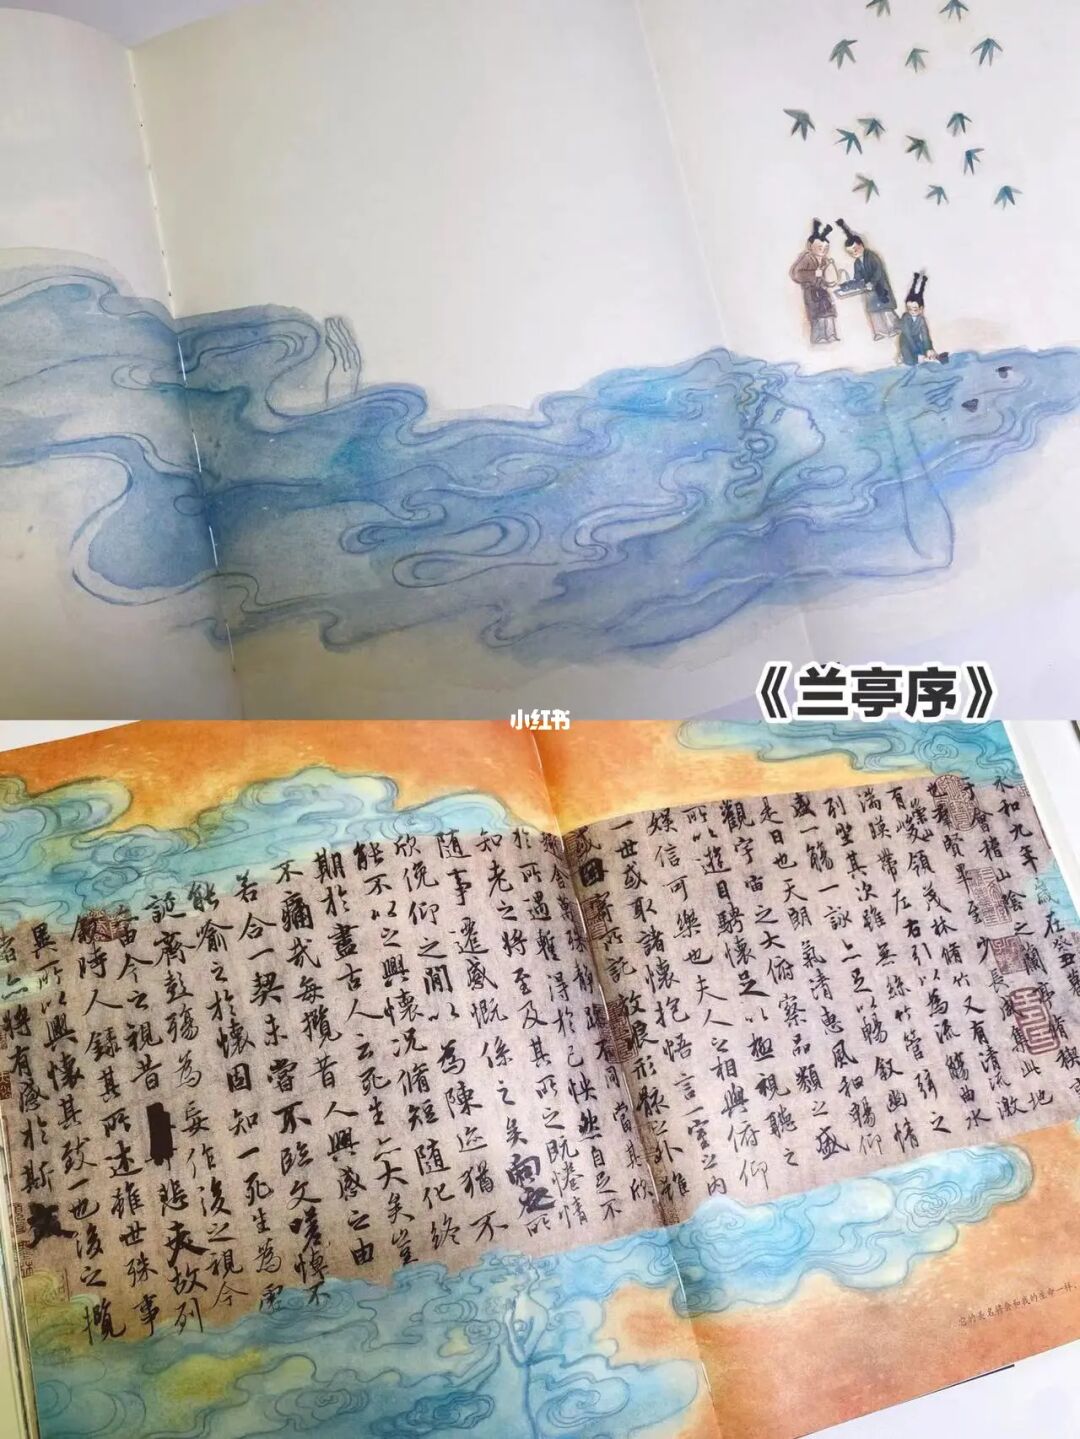 《兰亭序》
小红书
永和九年歲在癸丑暮
于會稽山陰之蘭亭脩稧事
也羣賢畢至少長咸集此地
有崇山峻領茂林脩竹又有清流激
湍暎帶左右引以為流觴曲水
列坐其次雖無絲竹管弦之
盛一觴一詠亦足以暢敘幽情
是日也天朗氣清惠風和暢仰
觀宇宙之大俯察品類之盛
所以遊目騁懷足以極視聽之
娛信可樂也夫人之相與俯仰
一世或取諸懷抱悟言一室之內
或因寄所託放浪形骸之外雖
趣舍萬殊靜躁不同當其欣
於所遇蹔得於己怏然自足不
知老之將至及其所之既惓情
隨事遷感慨係之矣向之所
欣俛仰之閒以為陳迹猶不
能不以之興懷況脩短隨化終
期於盡古人云死生亦大矣豈
不痛哉每攬昔人興感之由
若合一契未嘗不臨文嗟悼不
能喻之於懷固知一死生為虛
誕齊彭殤為妄作後之視今
亦由今之視昔悲夫故列
敘時人錄其所述雖世殊事
異所以興懷其致一也後之攬
者亦將有感於斯文
它的美名将会和我的生命一样，